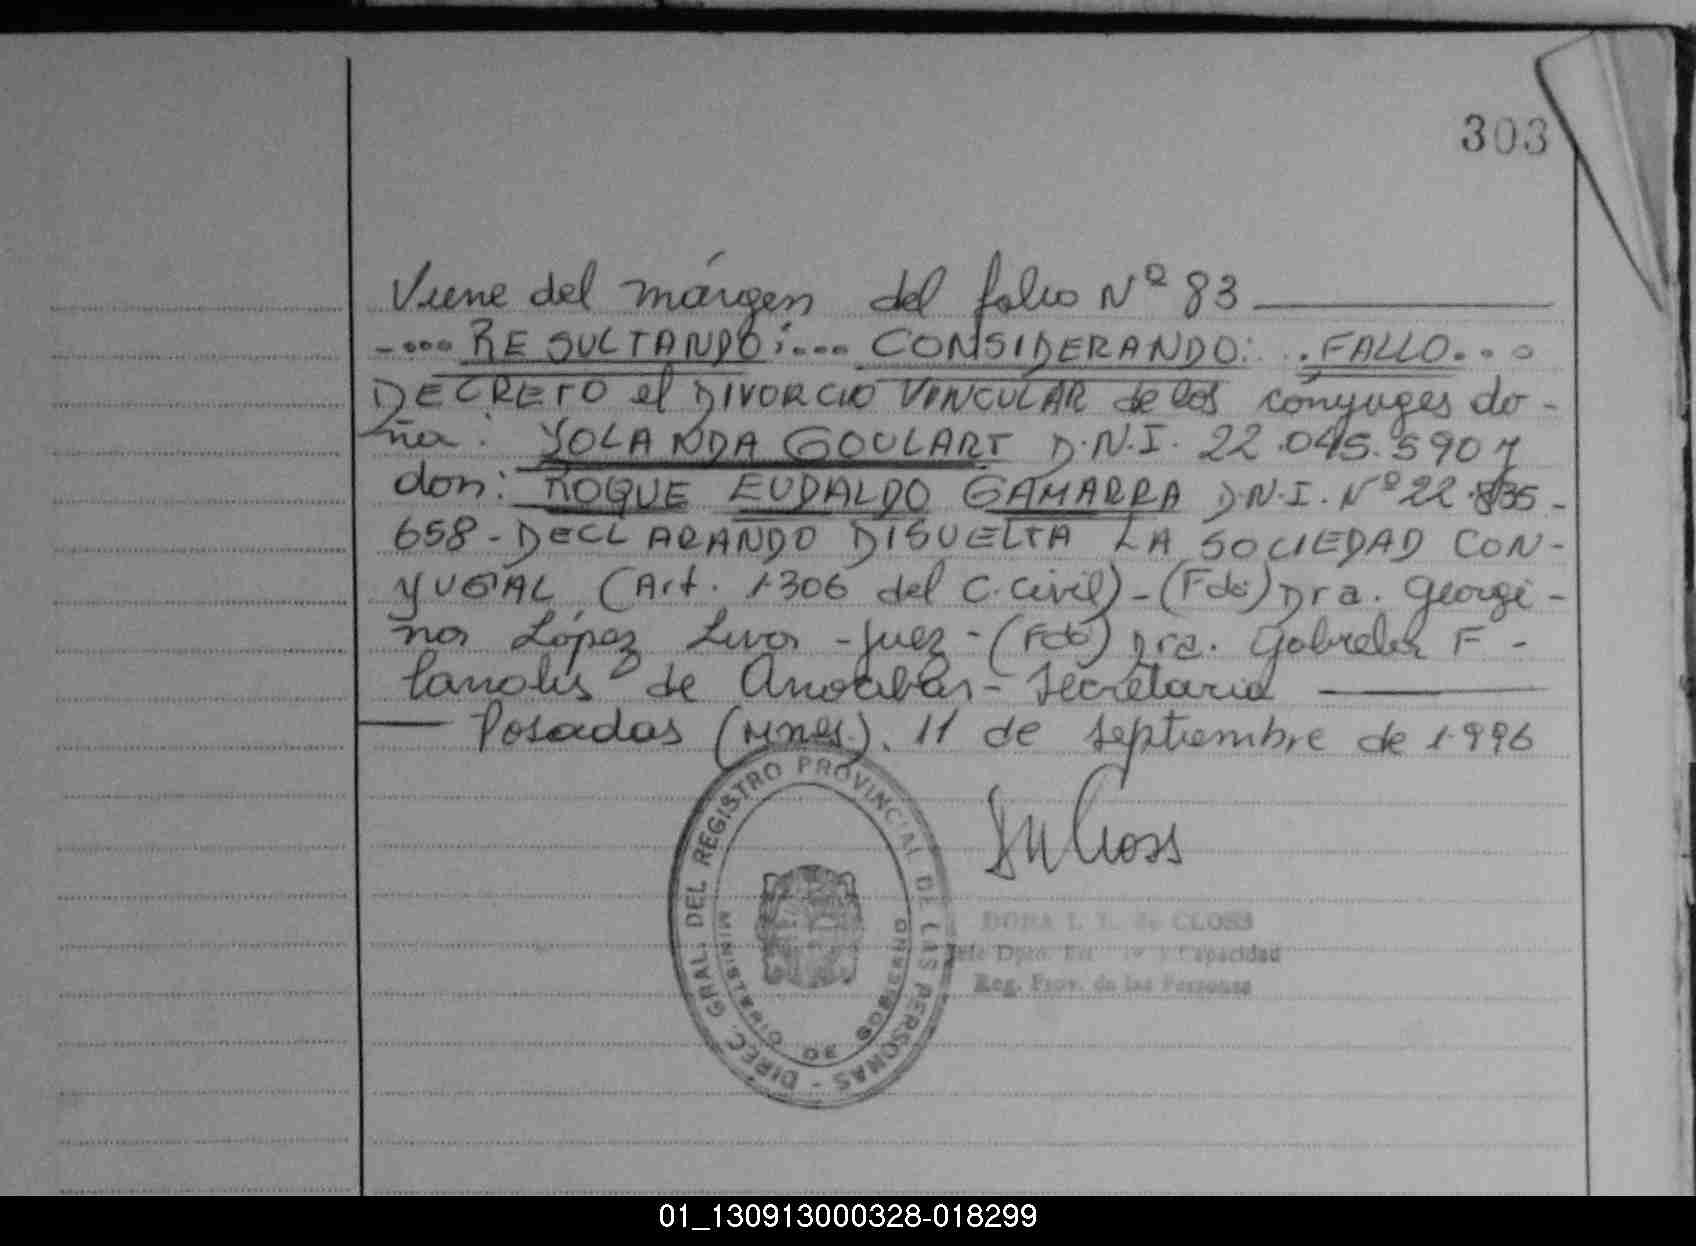 303
Viene del márgen del folio Nº 83
-.... RESULTANDO:.... CONSIDERANDO: ..FALLO...
DECRETO el DIVORCIO VINCULAR de los cónyuges do-
ña: YOLANDA GOULART D.N.I. 22.045.590 y
don: ROQUE EUDALDO GAMARRA D.N.I. Nº 22.835-
658-DECLARANDO DISUELTA LA SOCIEDAD CON-
YUGAL (Art. 1306 del C. Civil)-(Fdo) Dra. Georgi-
na López Liva -Juez-(Fdo) Dra. Gabriela F-
de - Secretaria
Posadas (Mnes.), 11 de septiembre de 1996
DIREC. GRAL. DEL REGISTRO PROVINCIAL DE LAS PERSONAS -
MINISTERIO DE GOBIERNO
DORA de CLOSS
Dpto. y Capacidad
Reg. Prov. de las Personas
01_130913000328-018299